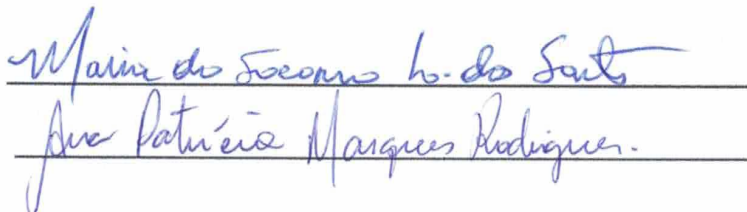 Maria do Socorro L. do Santo
Ana Patrícia Marques Rodrigues.